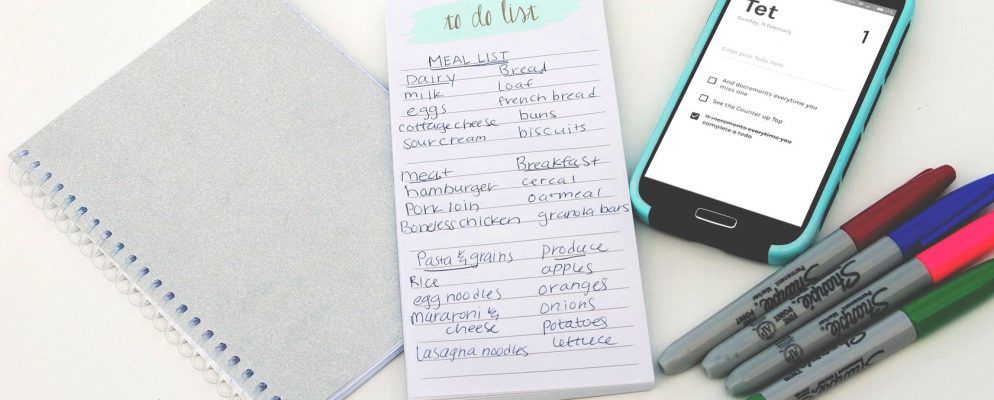 to do list
MEAL LIST
Dairy Bread
milk Loaf
eggs french bread
cottage cheese buns
sour cream biscuits
meat Breakfast
hamburger cereal
Pork loin oatmeal
Boneless chicken granola bars
Pasta & grains produce
Rice apples
egg noodles oranges
mararoni & onions
cheese potatoes
lasagna noodles lettuce
Tet
Sunday, 11 February
1
Enter your Todo Here
And decrements everytime you
miss one
See the Counter up Top
It increments everytime you
complete a todo
Sharpie
Permanent Marker
FINE POINT
AP
Sharpie
Permanent Marker
FINE POINT
AP
Sharpie